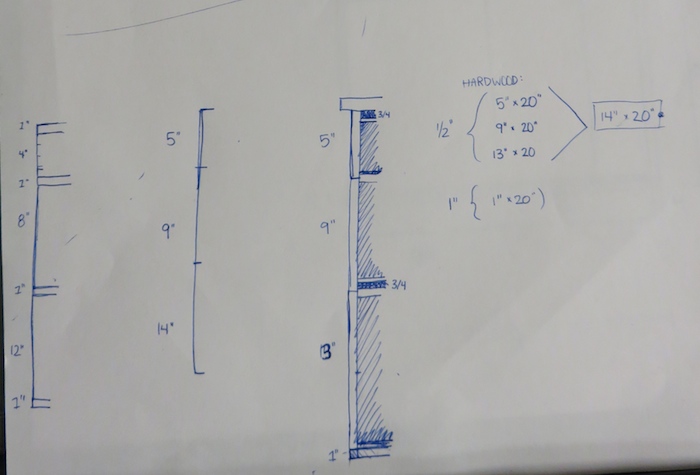 1"
4"
1"
8"
1"
12"
1"
5"
9"
14"
5"
9"
13"
1"
3/4
3/4
HARDWOOD:
1/2" { 5" x 20"
9" x 20"
13" x 20
14" x 20"
1" { 1" x 20" )